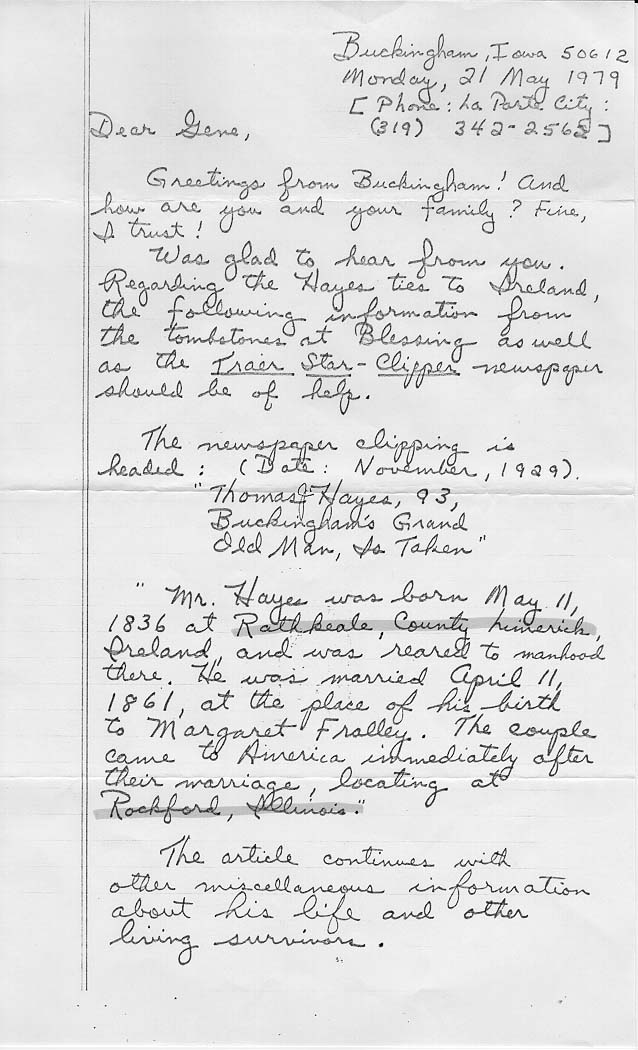 Buckingham, Iowa 50612
Monday, 21 May 1979
[Phone: La Porte City:
(319) 342-2565]
Dear Gene,
Greetings from Buckingham! And
how are you and your family? Fine,
I trust!
Was glad to hear from you.
Regarding the Hayes ties to Ireland,
the following information from
the tombstones at Blessing as well
as the Traer Star-Clipper newspaper
should be of help.
The newspaper clipping is
headed: (Date: November, 1929).
"Thomas J Hayes, 93,
Buckingham's Grand
Old Man, Is Taken"
"Mr. Hayes was born May 11,
1836 at Rathkeale, County Limerick,
Ireland, and was reared to manhood
there. He was married April 11,
1861, at the place of his birth
to Margaret Fralley. The couple
came to America immediately after
their marriage, locating at
Rockford, Illinois."
The article continues with
other miscellaneous information
about his life and other
living survivors.